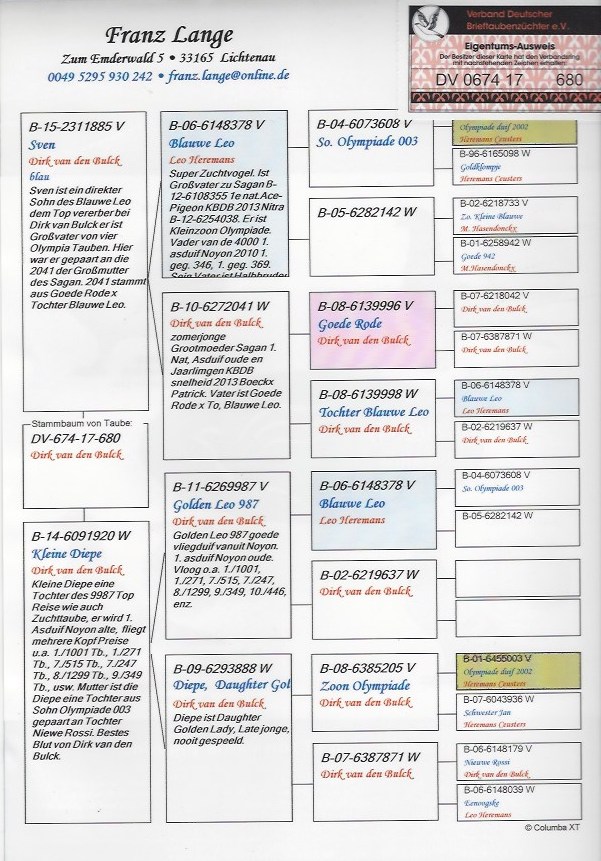 Franz Lange
Zum Emderwald 5 • 33165 Lichtenau
0049 5295 930 242 • franz.lange@online.de
Verband Deutscher
Brieftaubenzüchter e.V.
Eigentums-Ausweis
Der Besitzer dieser Karte hat den Verbandsring
mit nachstehenden Zeichen erhalten:
DV 0674 17 680
B-15-2311885 V
Sven
Dirk van den Bulck
blau
Sven ist ein direkter
Sohn des Blauwe Leo
dem Top vererber bei
Dirk van Bulck er ist
Großvater von vier
Olympia Tauben. Hier
war er gepaart an die
2041 der Großmutter
des Sagan. 2041 stammt
aus Goede Rode x
Tochter Blauwe Leo.
Stammbaum von Taube:
DV-674-17-680
Dirk van den Bulck
B-14-6091920 W
Kleine Diepe
Dirk van den Bulck
Kleine Diepe eine
Tochter des 9987 Top
Reise wie auch
Zuchttaube, er wird 1.
Asduif Noyon alte, fliegt
mehrere Kopf Preise
u.a. 1./1001 Tb., 1./271
Tb., 7./515 Tb., 7./247
Tb., 8./1299 Tb., 9./349
Tb., usw. Mutter ist die
Diepe eine Tochter aus
Sohn Olympiade 003
gepaart an Tochter
Niewe Rossi. Bestes
Blut von Dirk van den
Bulck.
B-06-6148378 V
Blauwe Leo
Leo Heremans
Super Zuchtvogel. Ist
Großvater zu Sagan B-
12-6108355 1e nat.Ace-
Pigeon KBDB 2013 Nitra
B-12-6254038. Er ist
Kleinzoon Olympiade.
Vader van de 4000 1.
asduif Noyon 2010 1.
geg. 346, 1. geg. 369.
Sein Vater ist Halbbruder
B-10-6272041 W
Dirk van den Bulck
zomerjonge
Grootmoeder Sagan 1.
Nat, Asduif oude en
Jaarlimgen KBDB
snelheid 2013 Boeckx
Patrick. Vater ist Goede
Rode x To, Blauwe Leo.
B-11-6269987 V
Golden Leo 987
Dirk van den Bulck
Golden Leo 987 goede
vliegduif vanuit Noyon.
1. asduif Noyon oude.
Vloog o.a. 1./1001,
1./271, 7./515, 7./247,
8./1299, 9./349, 10./446,
enz.
B-09-6293888 W
Diepe, Daughter Gol
Dirk van den Bulck
Diepe ist Daughter
Golden Lady, Late jonge,
nooit gespeeld.
B-04-6073608 V
So. Olympiade 003
B-05-6282142 W
B-08-6139996 V
Goede Rode
Dirk van den Bulck
B-08-6139998 W
Tochter Blauwe Leo
Dirk van den Bulck
B-06-6148378 V
Blauwe Leo
Leo Heremans
B-02-6219637 W
Dirk van den Bulck
B-08-6385205 V
Zoon Olympiade
Dirk van den Bulck
B-07-6387871 W
Dirk van den Bulck
Olympiade duif 2002
Heremans Ceusters
B-96-6165098 W
Goldklompje
Heremans Ceusters
B-02-6218733 V
Zo. Kleine Blauwe
M. Hasendonckx
B-01-6258942 W
Goede 942
M.Hasendonckx
B-07-6218042 V
Dirk van den Bulck
B-07-6387871 W
Dirk van den Bulck
B-06-6148378 V
Blauwe Leo
Leo Heremans
B-02-6219637 W
Dirk van den Bulck
B-04-6073608 V
So. Olympiade 003
B-05-6282142 W
B-01-6455003 V
Olympiade duif 2002
Heremans Ceusters
B-07-6043936 W
Schwester Jan
Heremans Ceusters
B-06-6148179 V
Nieuwe Rossi
Dirk van den Bulck
B-06-6148039 W
Eenoogske
Leo Heremans
© Columba XT